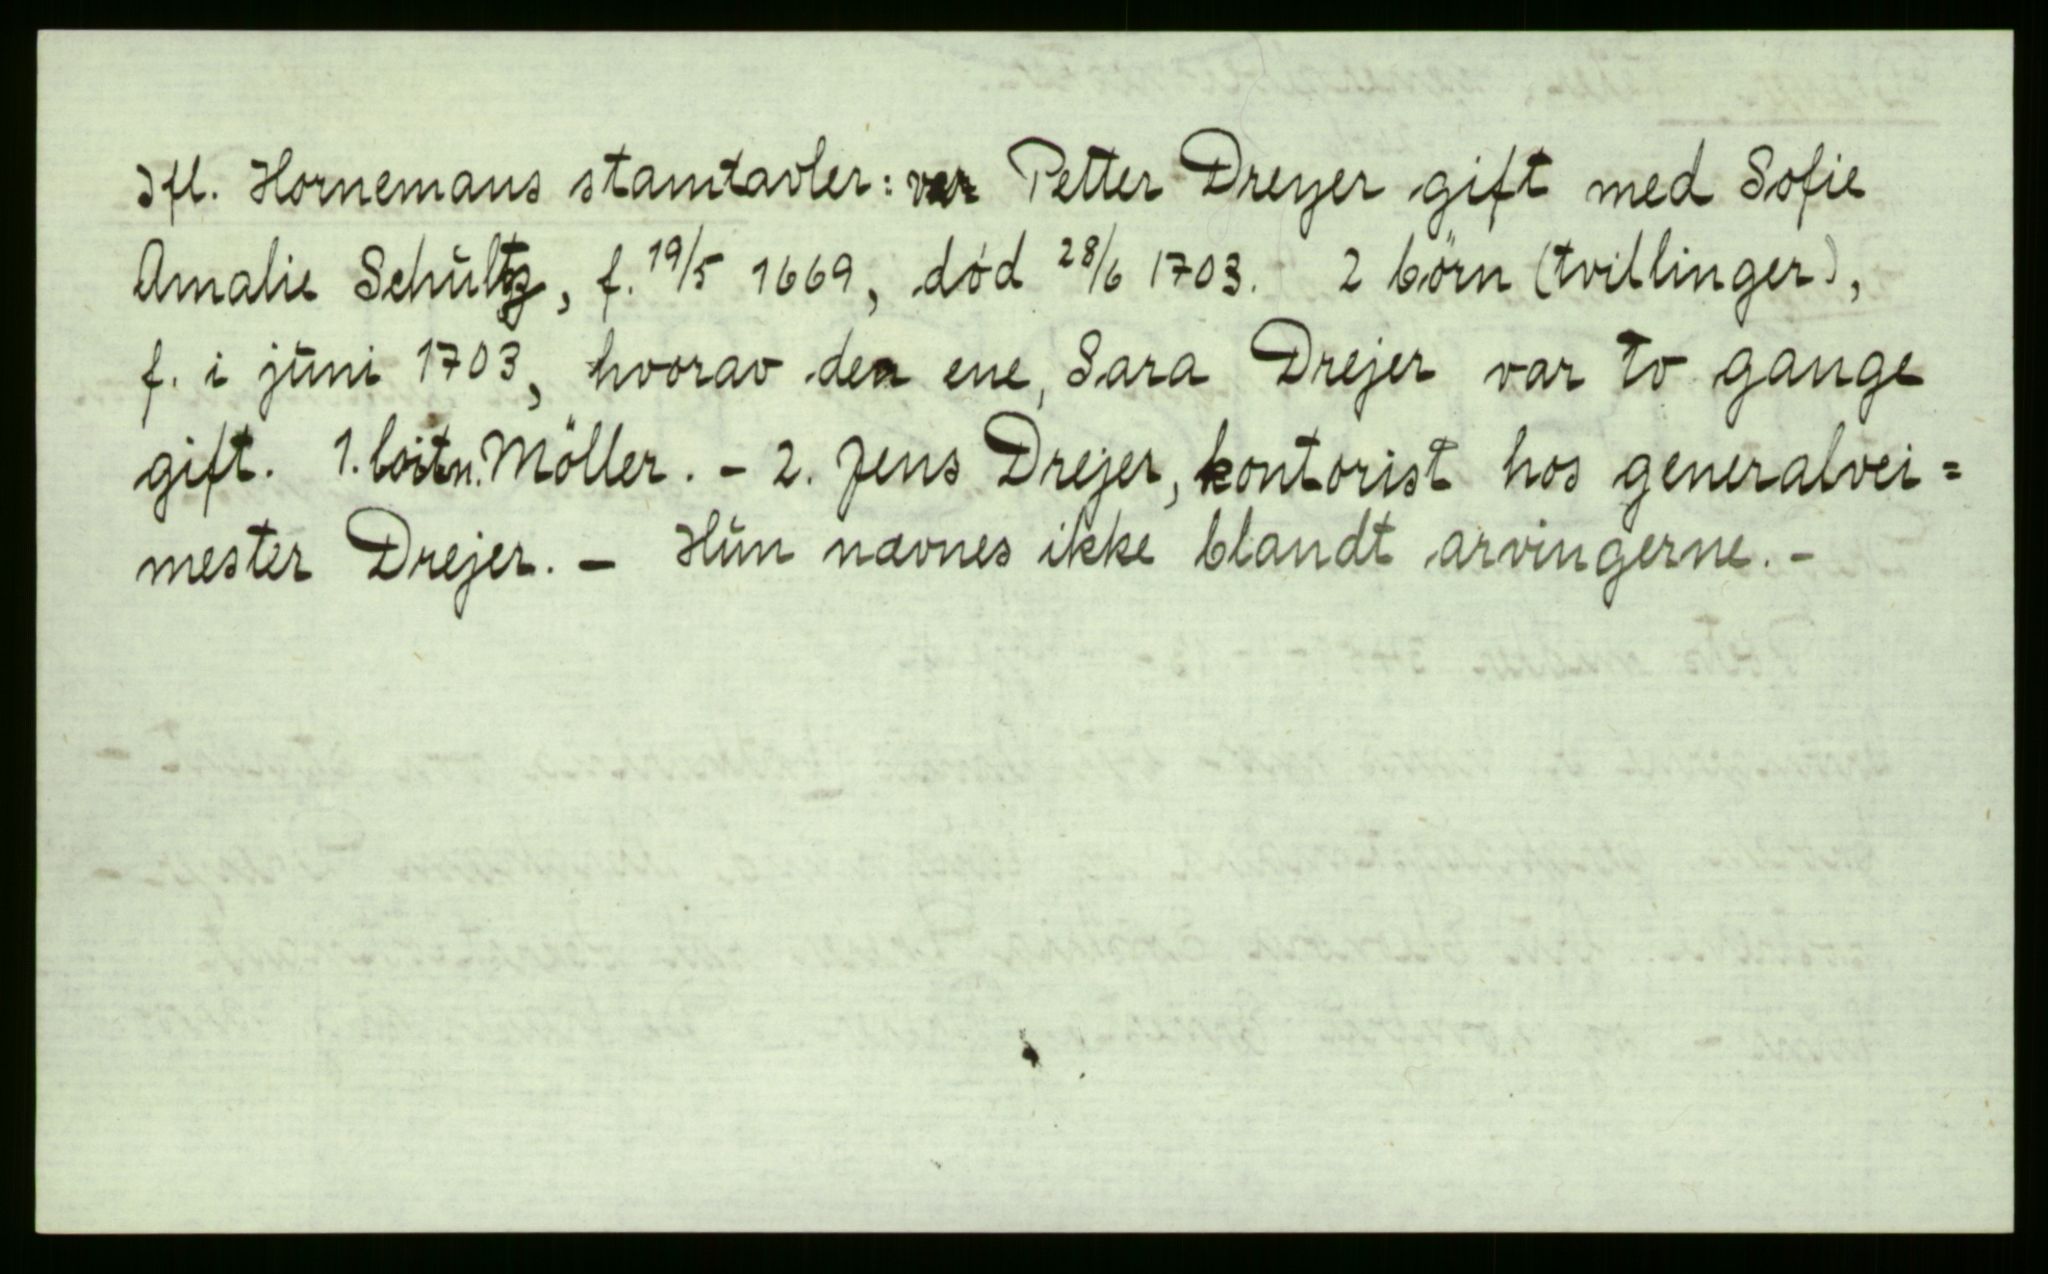 Ifl. Hornemans stamtavler: var Petter Dreyer gift med Sofie
Amalie Schultz, f. 19/5 1669, død 28/6 1703. 2 börn (tvillinger),
f. i juni 1703, hvorav den ene, Sara Drejer var to gange
gift. 1. loitn. Möller. - 2. Jens Drejer, kontorist hos generalvei=
mester Drejer. - Hun nævnes ikke blandt arvingerne. -